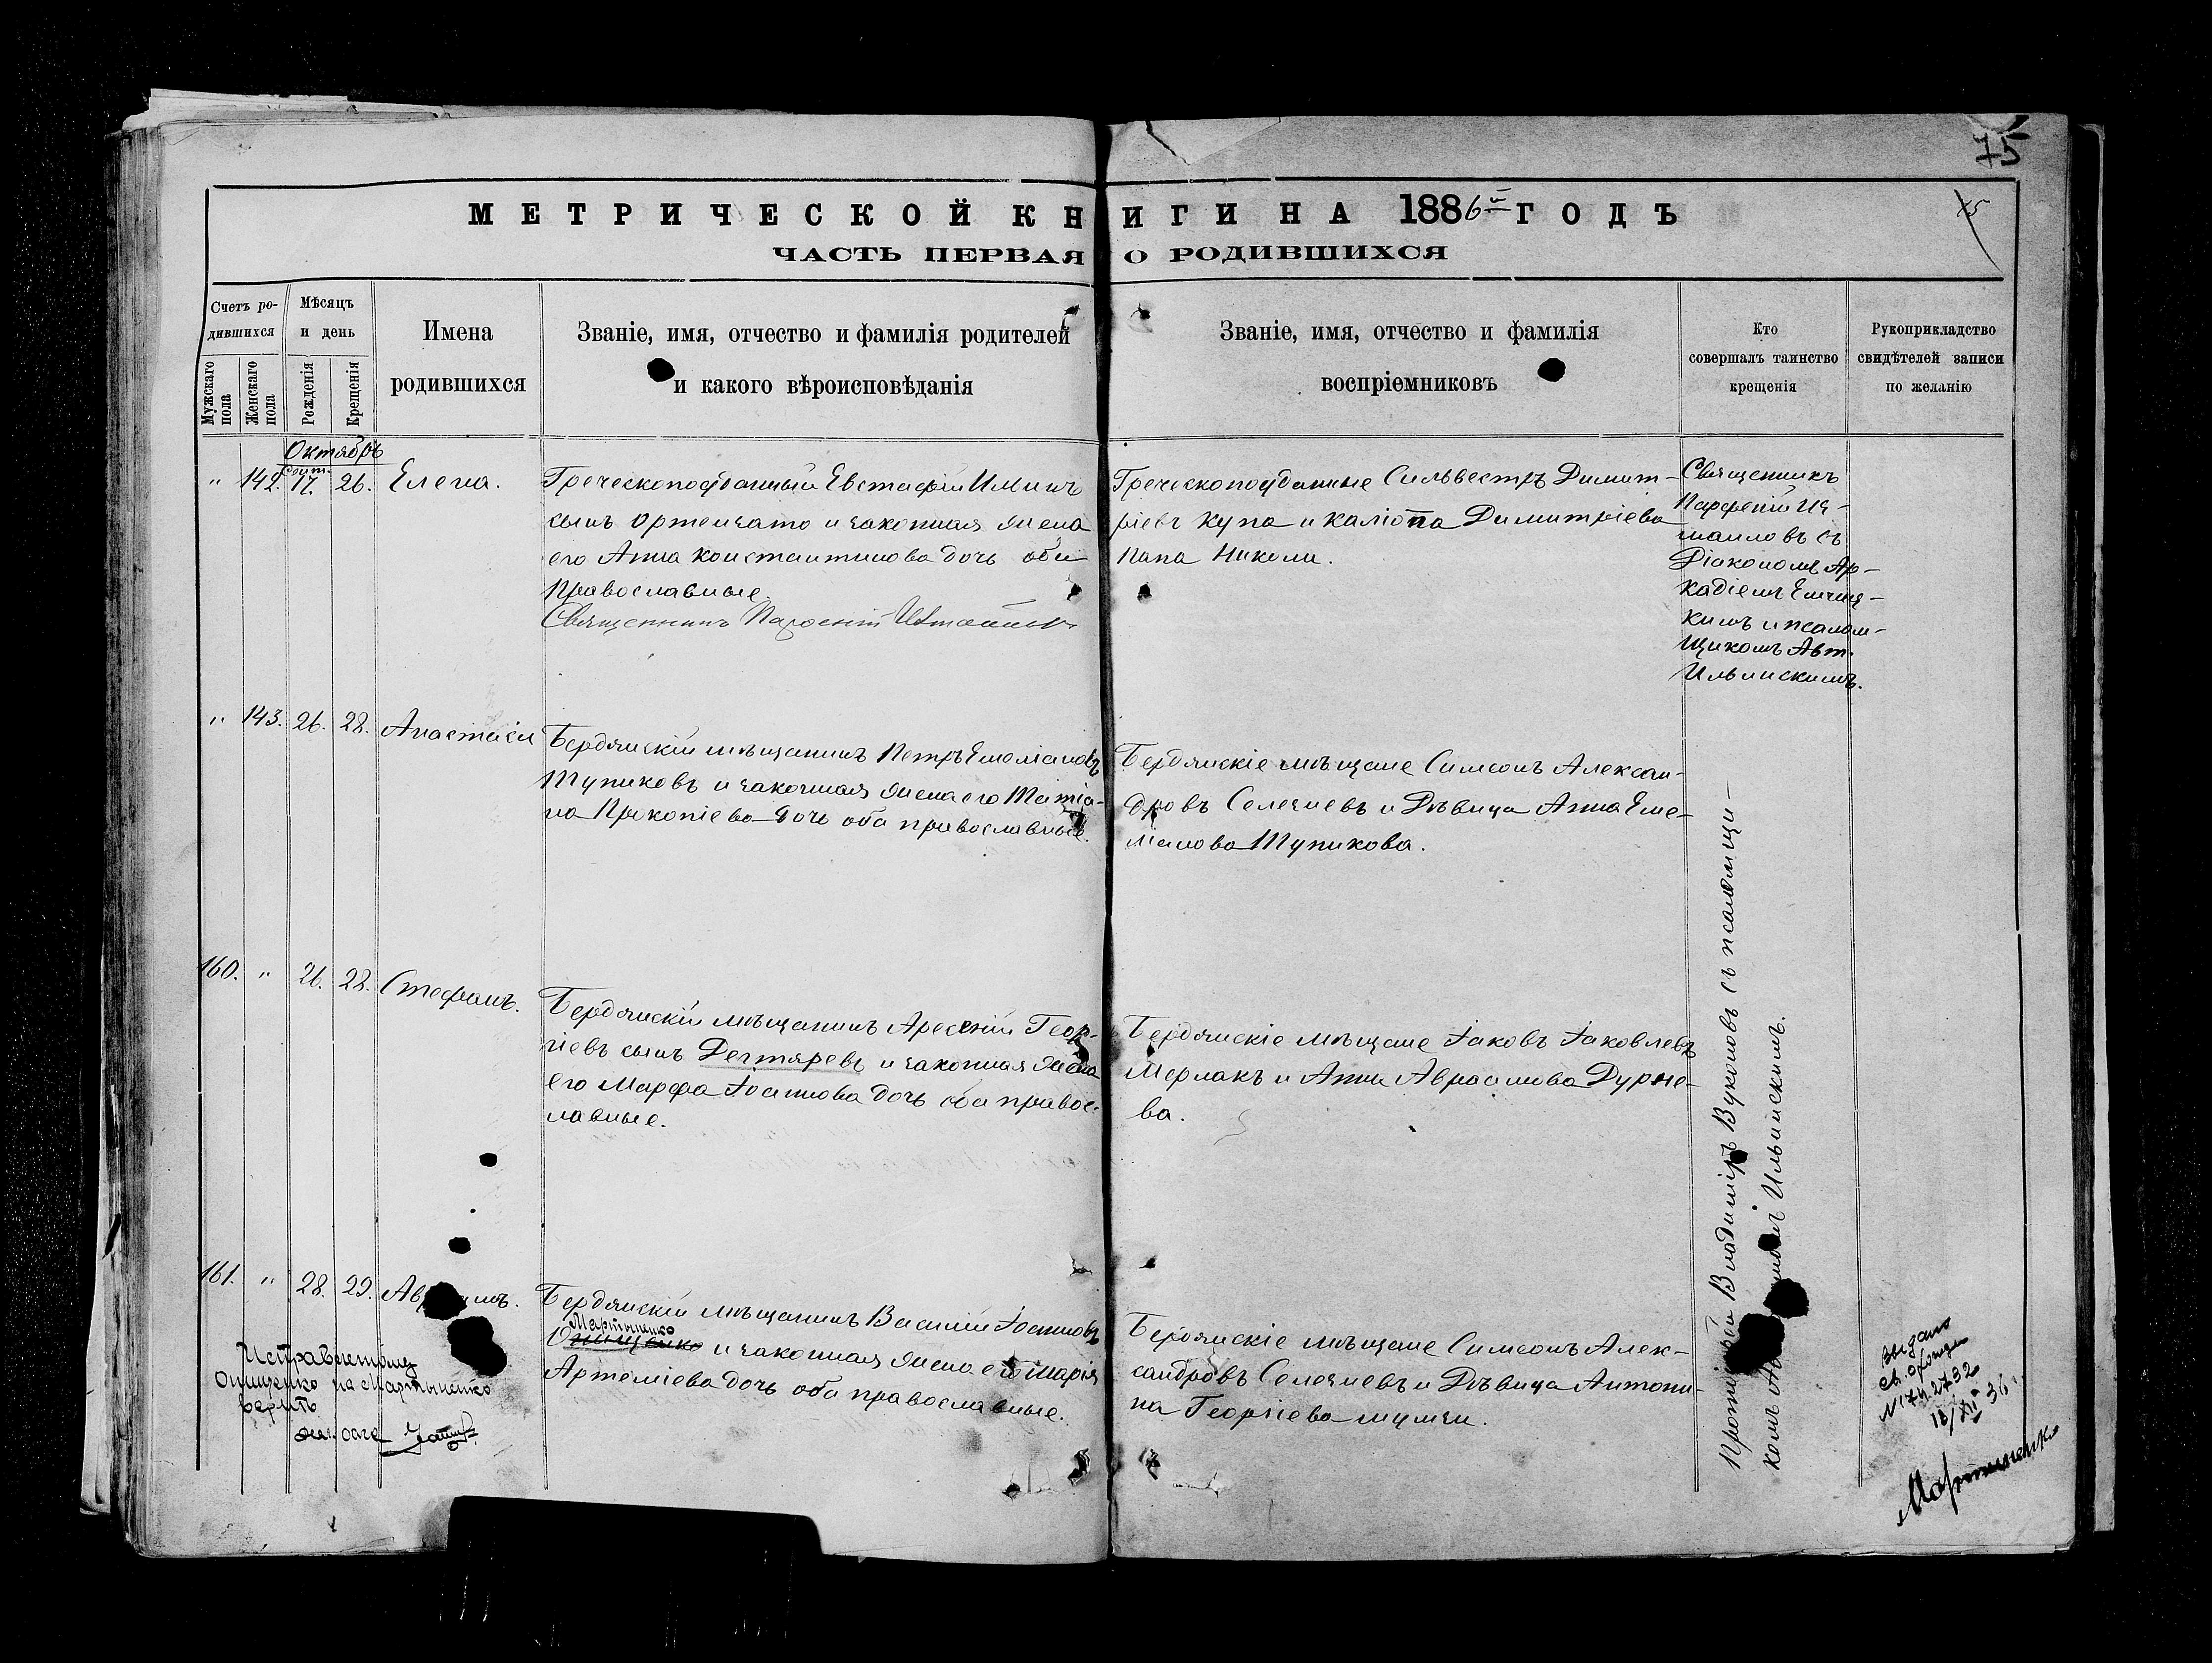 75
МЕТРИЧЕСКОЙ КНИГИ НА 1886й ГОДЪ
75
ЧАСТЬ ПЕРВАЯ О РОДИВШИХСЯ
Счетъ ро-
дившихся
Мужскаго пола
Женскаго пола
Мѣсяцъ
и день
Рожденія
Крещенія
Имена
родившихся
Званіе, имя, отчество и фамилія родителей
и какого вѣроисповѣданія
Званіе, имя, отчество и фамилія
воспріемниковъ
Кто
совершалъ таинство
крещенія
Рукоприкладство
свидѣтелей записи
по желанію
Октябрь
" 142. Сент. 17. 26. Елена.
Греческоподданный Евстафій Илiинъ
сынъ Ортенгато и законная жена
его Анна Константинова дочь оба
Православные.
Священникъ Парфеній
Греческоподданные Сильвестръ Димит-
ріевъ Купа и Каліопа Димитріева
Папа Николи.
Священникъ
Парфеній Из-
маиловъ съ
Діакономъ Ар-
кадіемъ
кимъ и псалом-
щикомъ Авт.
Ильинскимъ.
" 143. 26. 28. Анастасія
Бердянскій мѣщанинъ Петръ Емеліановъ
Тупиковъ и законная жена его Татіа-
на Прокопіева дочь оба православные.
Бердянскіе мѣщане Симеонъ Алексан-
дровъ Селезневъ и Дѣвица Анна Еме-
ліанова Тупикова.
160. " 26. 28. Стефанъ.
Бердянскій мѣщанинъ Арсеній Геор-
гіевъ сынъ Дегтяревъ и законная жена
его Марфа Іоаннова дочь оба правос-
лавные.
Бердянскіе мѣщане Іаковъ Іаковлевъ
Мерлакъ и Анна Авраамова Дурне-
ва.
161. " 28. 29.
Бердянскій мѣщанинъ Василій Іоанновъ
Мартыненко
Онищенко и законная жена его Марія
Артеміева дочь оба православные.
Бердянскіе мѣщане Симеонъ Алек-
сандровъ Селезневъ и Дѣвица Антони-
на Георгіева
Протоіерей Владиміръ Вуколовъ съ псаломщи-
комъ Ильинскимъ.
Исправленному
Онищенко на Мартыненко
верить
Выдано
св. о рожден
№ 2732
18/XII 36
Мартыненко